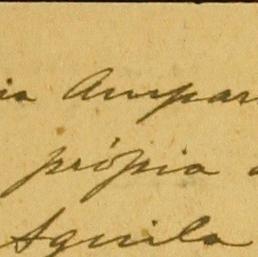 ia Ampar
própia
Aguila